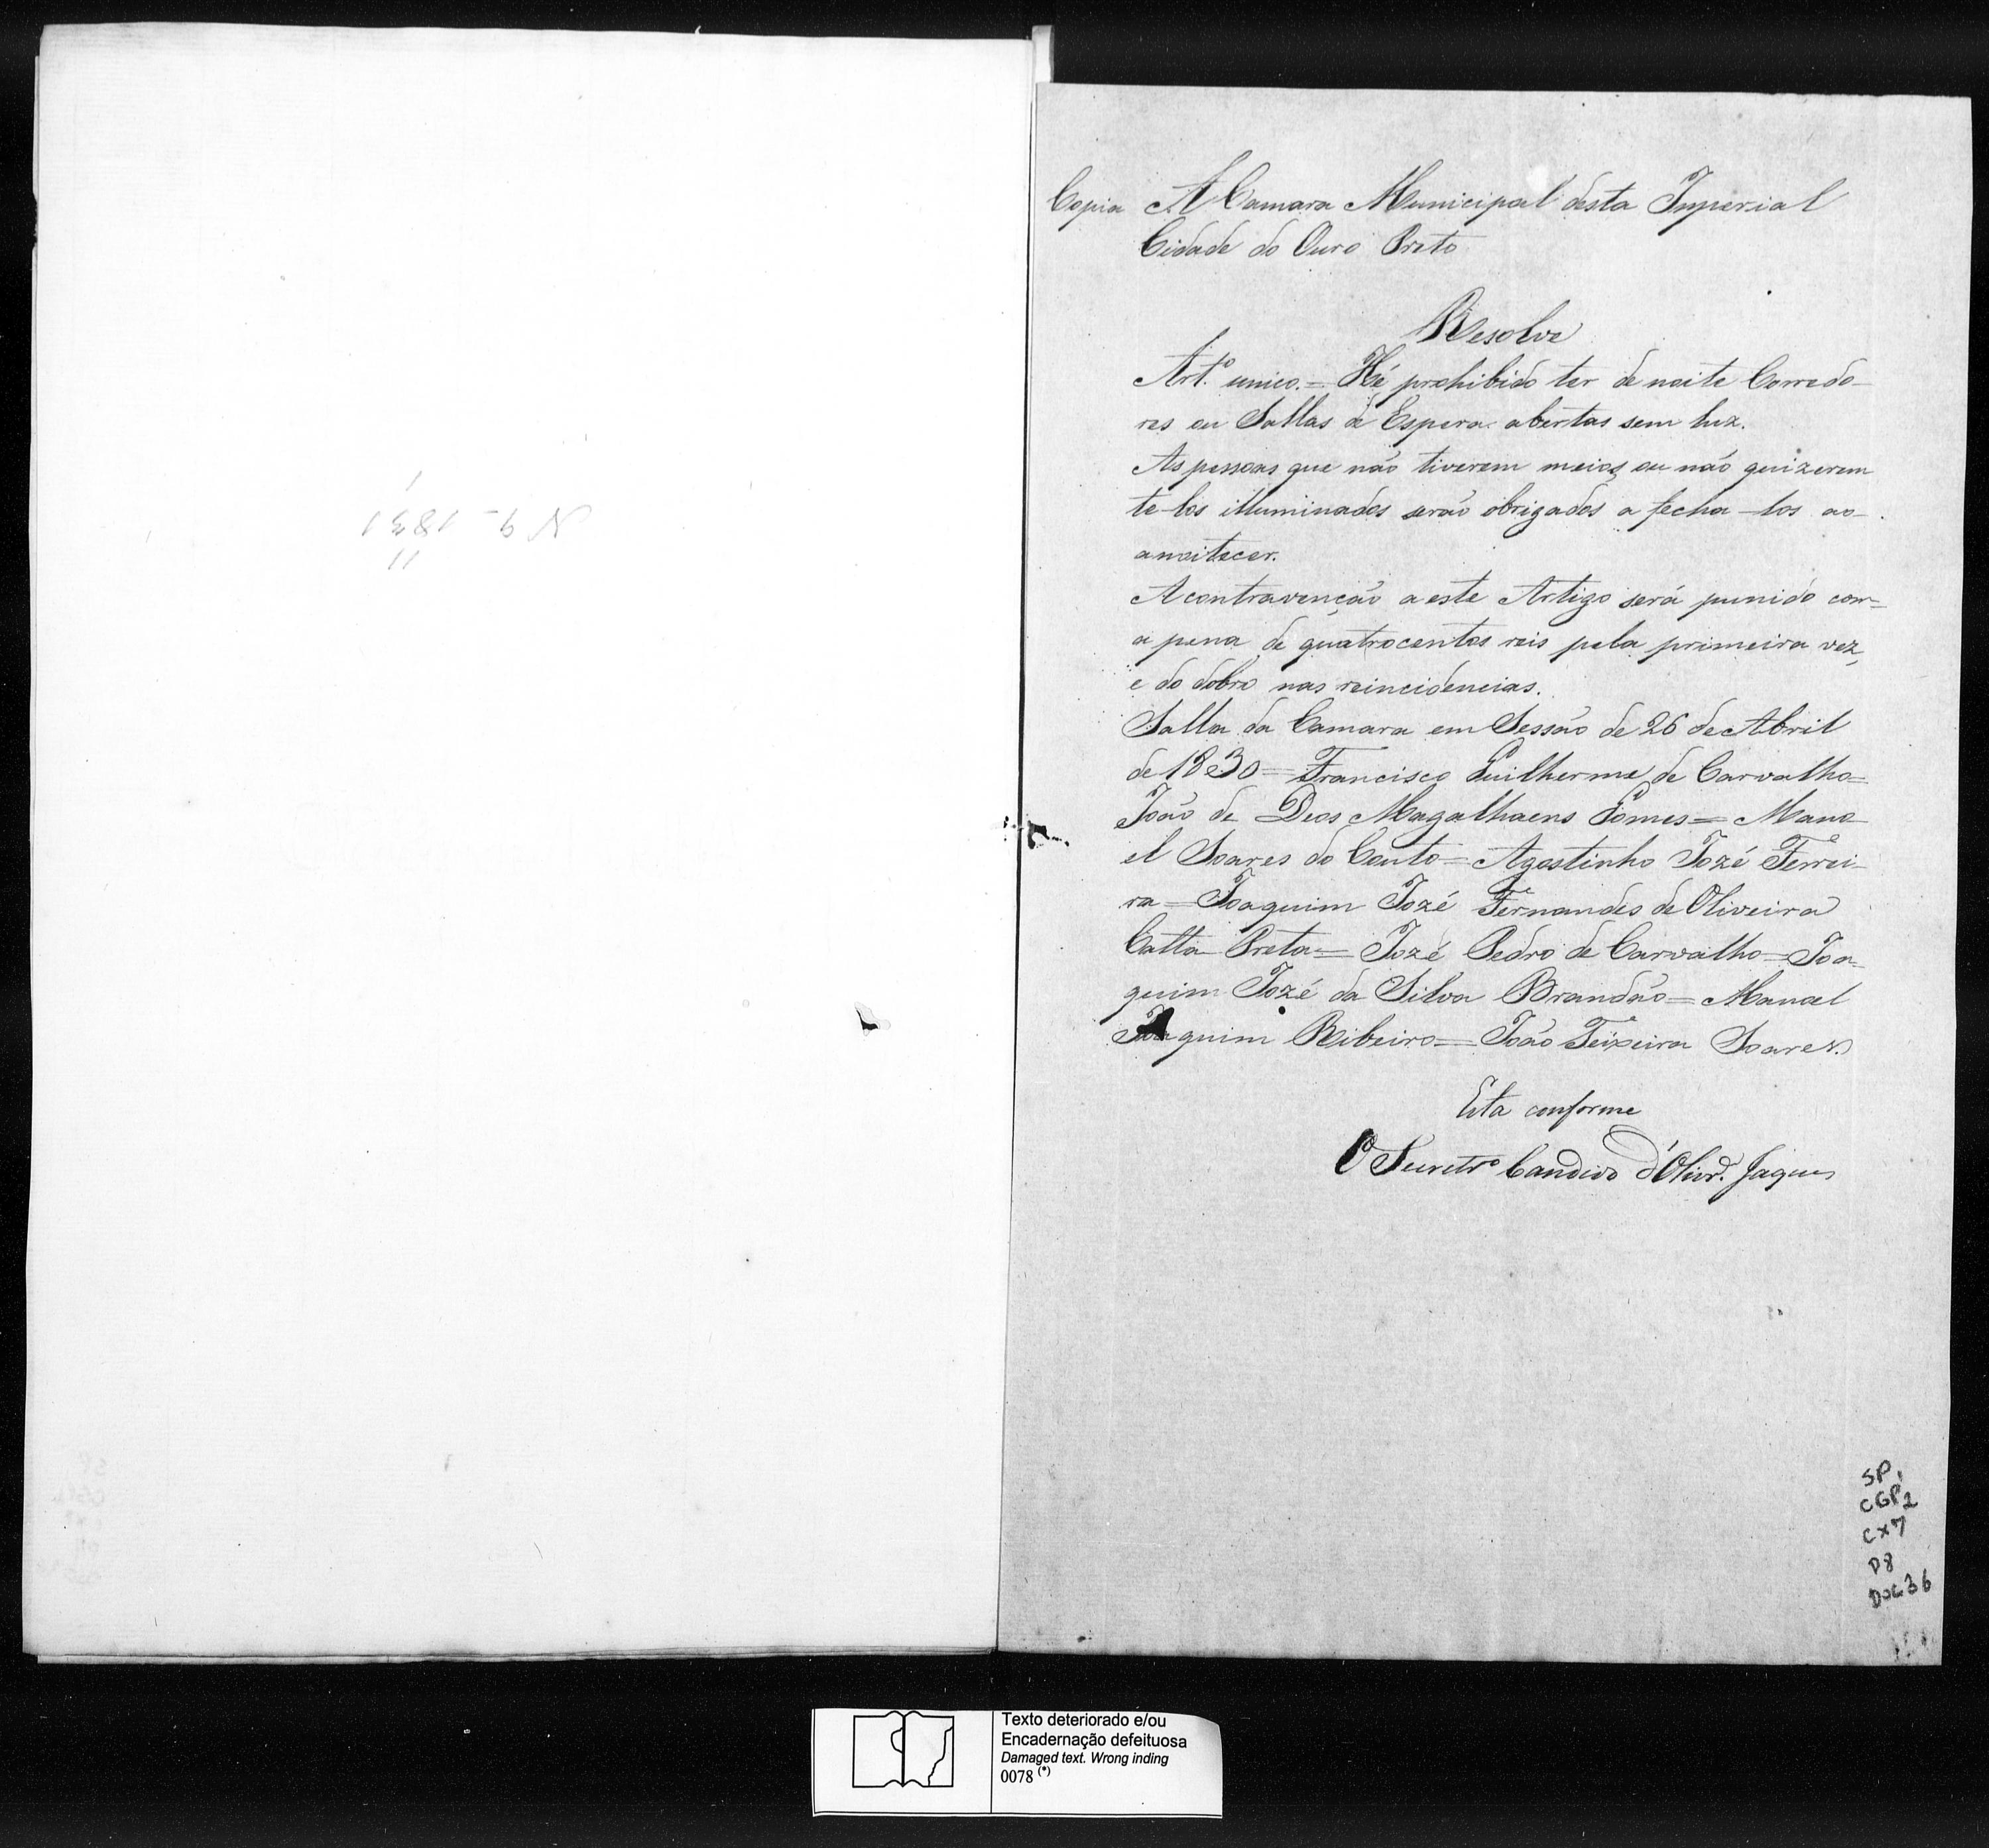 N 9 - 1831
11
Copia A Camara Municipal desta Imperial
Cidade do Ouro Preto
Resolve
Art.º unico. = Hé prohibido ter de noite Corredo-
res ou Sallas de Espera abertas sem luz.
As pessoas que não tiverem meios, ou não quizerem
te-los illuminados serão obrigados a fecha-los ao
anoitecer.
A contravenção a este Artigo será punido com
a pena de quatrocentos reis pela primeira vez,
e do dobro nas reincidencias.
Salla da Camara em Sessão de 26 de Abril
de 1830 = Francisco Guilherme de Carvalho =
João de Deos Magalhaens Gomes = Mano
el Soares do Couto = Agostinho Jozé Ferrei-
ra = Joaquim Jozé Fernandes de Oliveira
Catta Preta = Jozé Pedro de Carvalho = Joa-
quim Jozé da Silva Brandão = Manoel
Joaquim Ribeiro = João Teixeira Soares.
Esta conforme
O Secretrº Candido d'Olivrª. Jaques
SP
CGP1
CX7
D8
DOC36
Texto deteriorado e/ou
Encadernação defeituosa
Damaged text. Wrong inding
0078 (*)